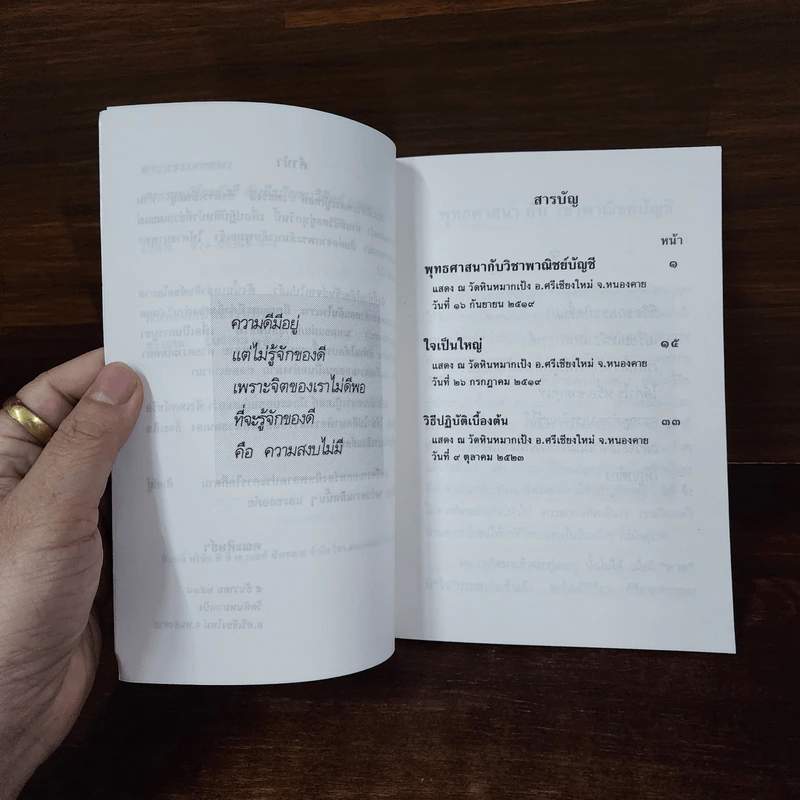 ความดีมีอยู่
แต่ไม่รู้จักของดี
เพราะจิตของเราไม่ดีพอ
ที่จะรู้จักของดี
คือ ความสงบไม่มี
สารบัญ
หน้า
พุทธศาสนากับวิชาพาณิชย์บัญชี ๑
แสดง ณ วัดหินหมากเป้ง อ.ศรีเชียงใหม่ จ.หนองคาย
วันที่ ๑๖ กันยายน ๒๕๑๙
ใจเป็นใหญ่ ๑๕
แสดง ณ วัดหินหมากเป้ง อ.ศรีเชียงใหม่ จ.หนองคาย
วันที่ ๒๖ กรกฎาคม ๒๕๑๙
วิธีปฏิบัติเบื้องต้น ๓๓
แสดง ณ วัดหินหมากเป้ง อ.ศรีเชียงใหม่ จ.หนองคาย
วันที่ ๙ ตุลาคม ๒๕๒๓